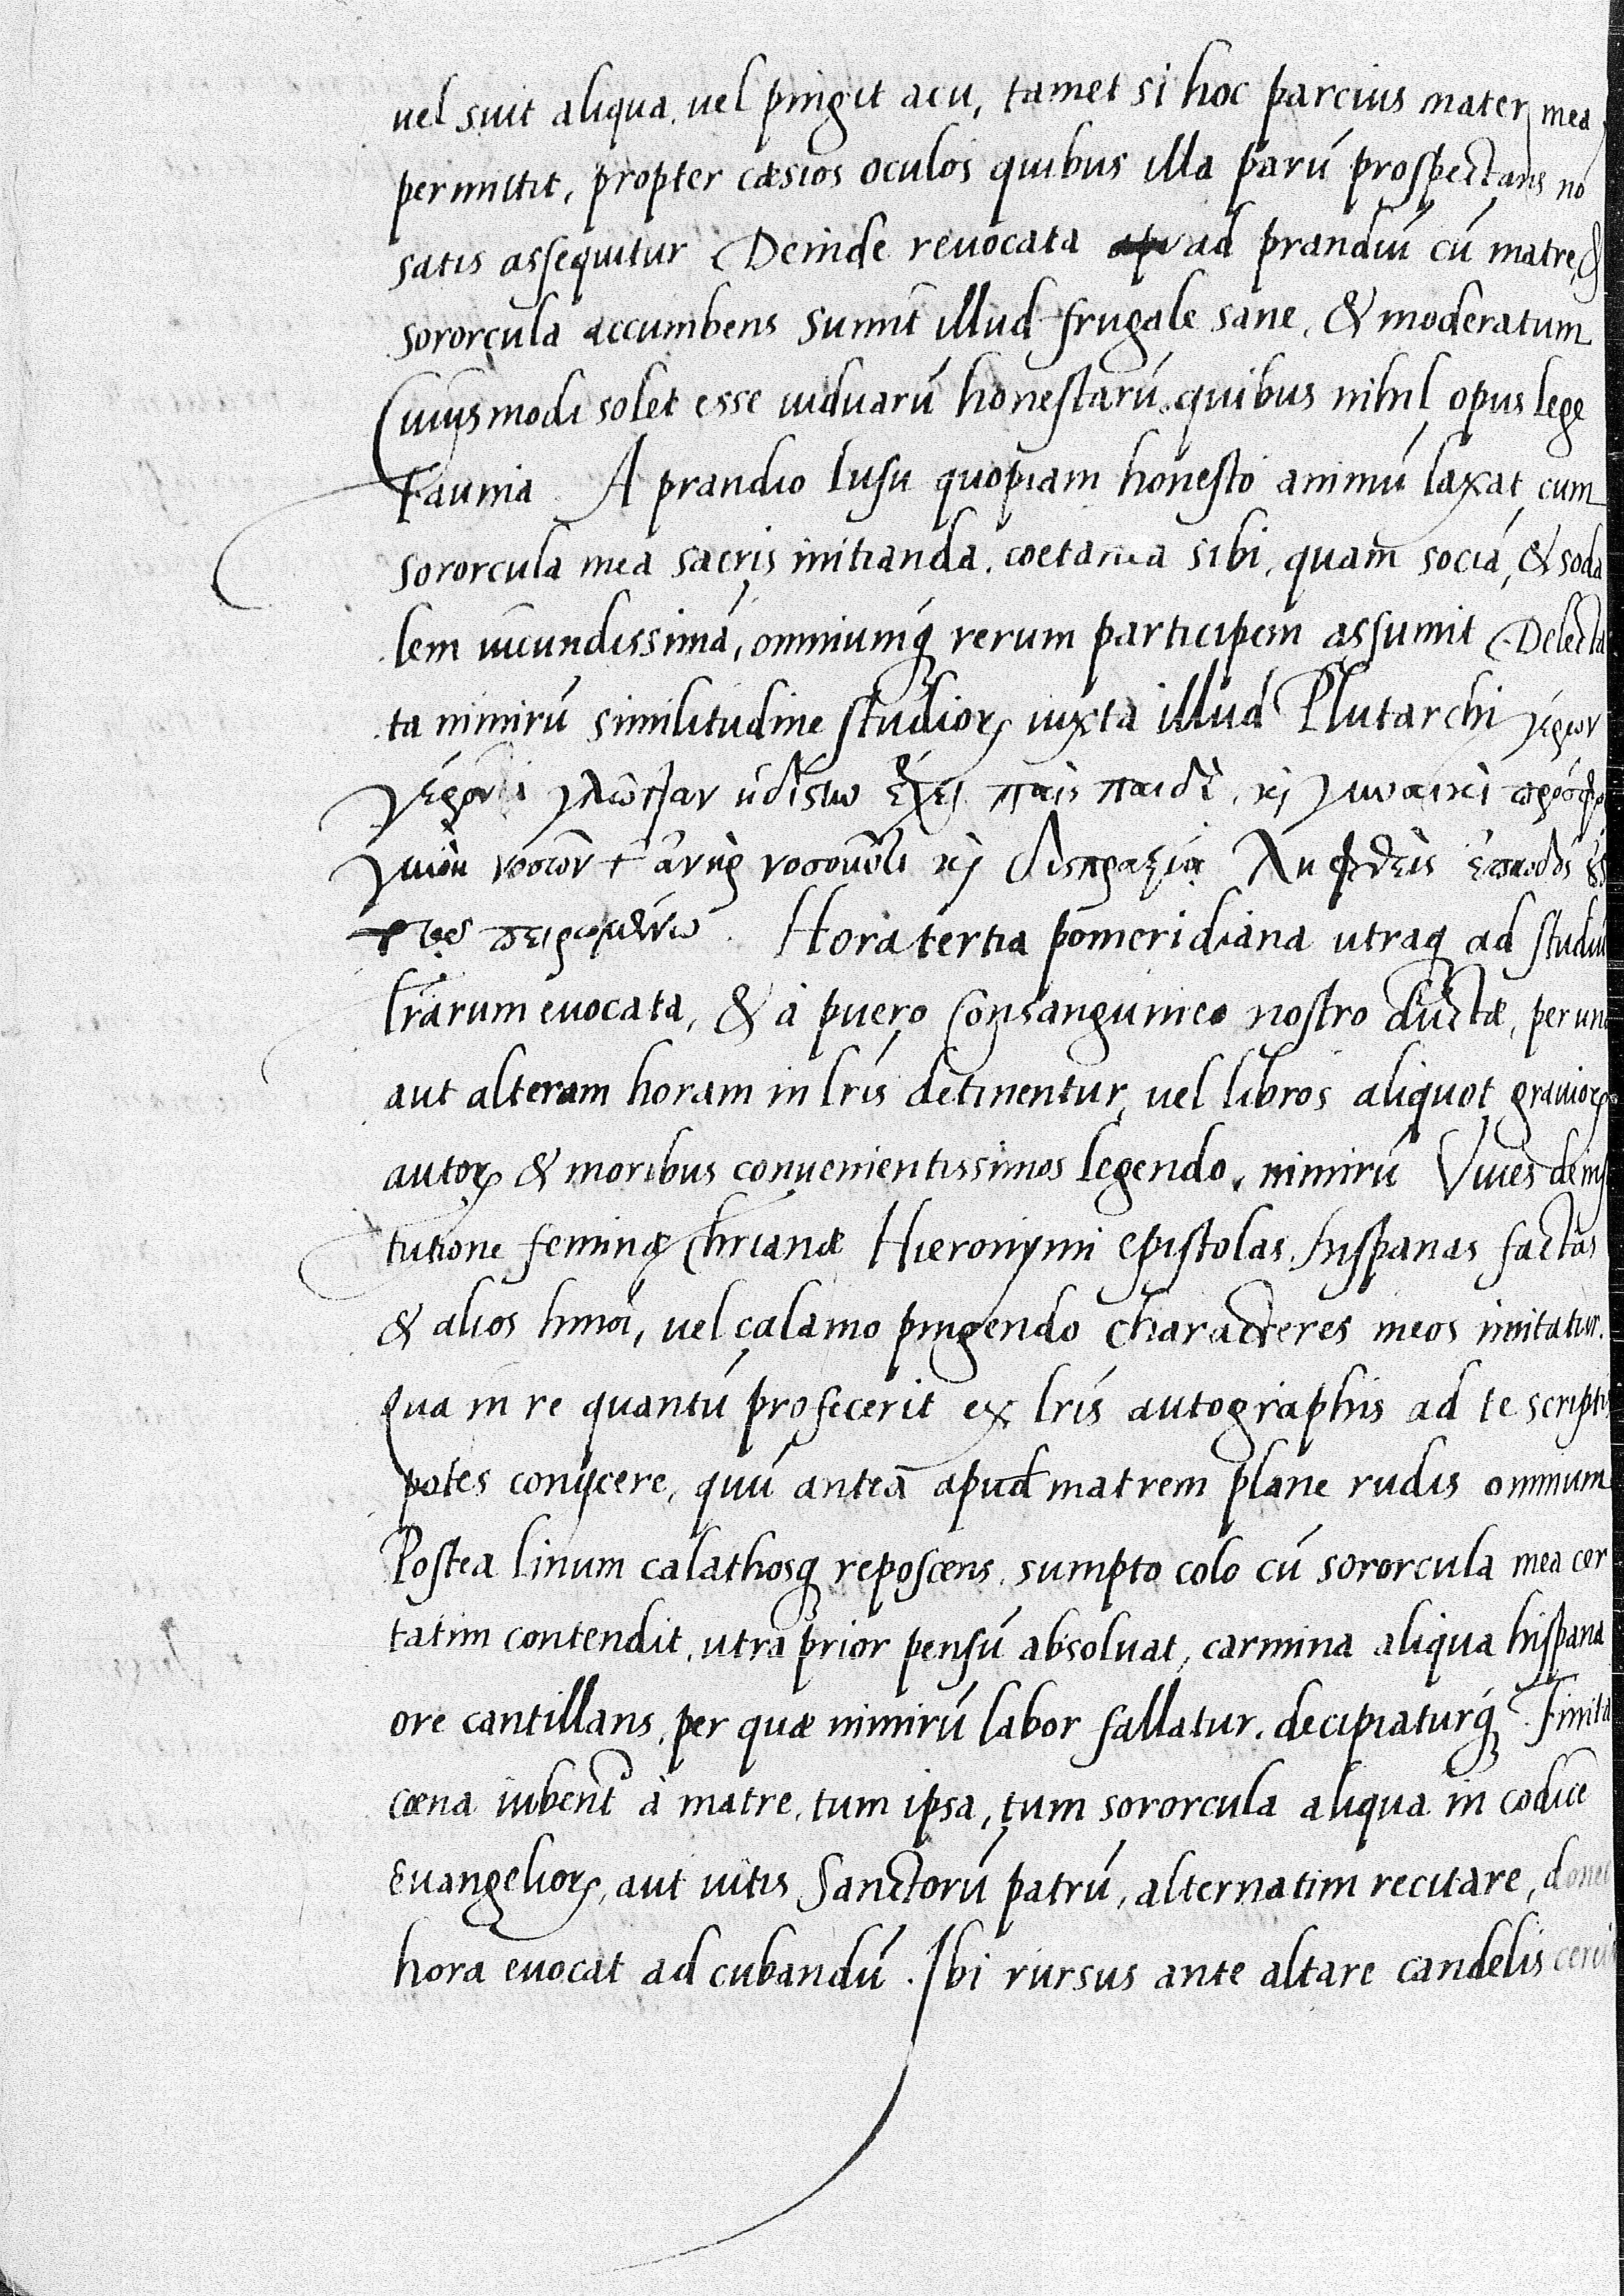 uel suit aliqua, uel pingit acu, tamet si hoc parcius mater mea
permittit, propter cæsios oculos quibus illa parū prospectans nō
satis assequitur Deinde reuocata ad prandiū cū matre, &
sororcula accumbens sumit illud frugale sane, & moderatum
Cuiusmodi solet esse uiduarū honestarū, quibus nihil opus lege
Faunia. A prandio lusu quopiam honesto animū laxat, cum
sororcula mea sacris initianda, coetanea sibi, quam sociā, & soda
lem iucundissimā, omniumq́ rerum participem assumit Delecta
ta nimirū similitudine studioꝝ iuxta illud Plutarchi γέρων
γέροντι γλῶτταν ἡδίστην ἔχει, παῖς παιδὶ, κ̀ γυναικὶ πρόσφο
ρον γυνὴ νοσῶν τ' ἀνὴρ νοσοῦντι κ̀ δυσπραξίᾳ ληφθεὶς ἐπῳδός ἐς
πειρωμένῳ. Hora tertia pomeridiana utraq ad studiū
lr̄arum euocata, & à puero Consanguineo nostro ductæ, per unā
aut alteram horam in lr̄is detinentur, uel libros aliquot grauioꝝ
autoꝝ & moribus conuenientissimos legendo, nimirū Viues de ins
tutione feminæ chr̄ianæ Hieronymi epistolas hispanas factas
& alios hmōi, uel calamo pingendo characteres meos imitatur.
Qua in re quantū profecerit ex lr̄is autographis ad te scriptis
potes conijcere, quū anteā apud matrem plane rudis omnium
Postea linum calathosq reposcens, sumpto colo cū sororcula mea cer
tatim contendit, utra prior pensū absoluat, carmina aliqua hispana
ore cantillans, per quæ nimirū labor fallatur, decipiaturq́ Finita
cœna iubent^r à matre, tum ipsa, tum sororcula aliqua in codice
Euangelioꝝ, aut uitis Sanctorū patrū, alternatim recitare, donec
hora euocat ad cubandū. Ibi rursus ante altare candelis cereis